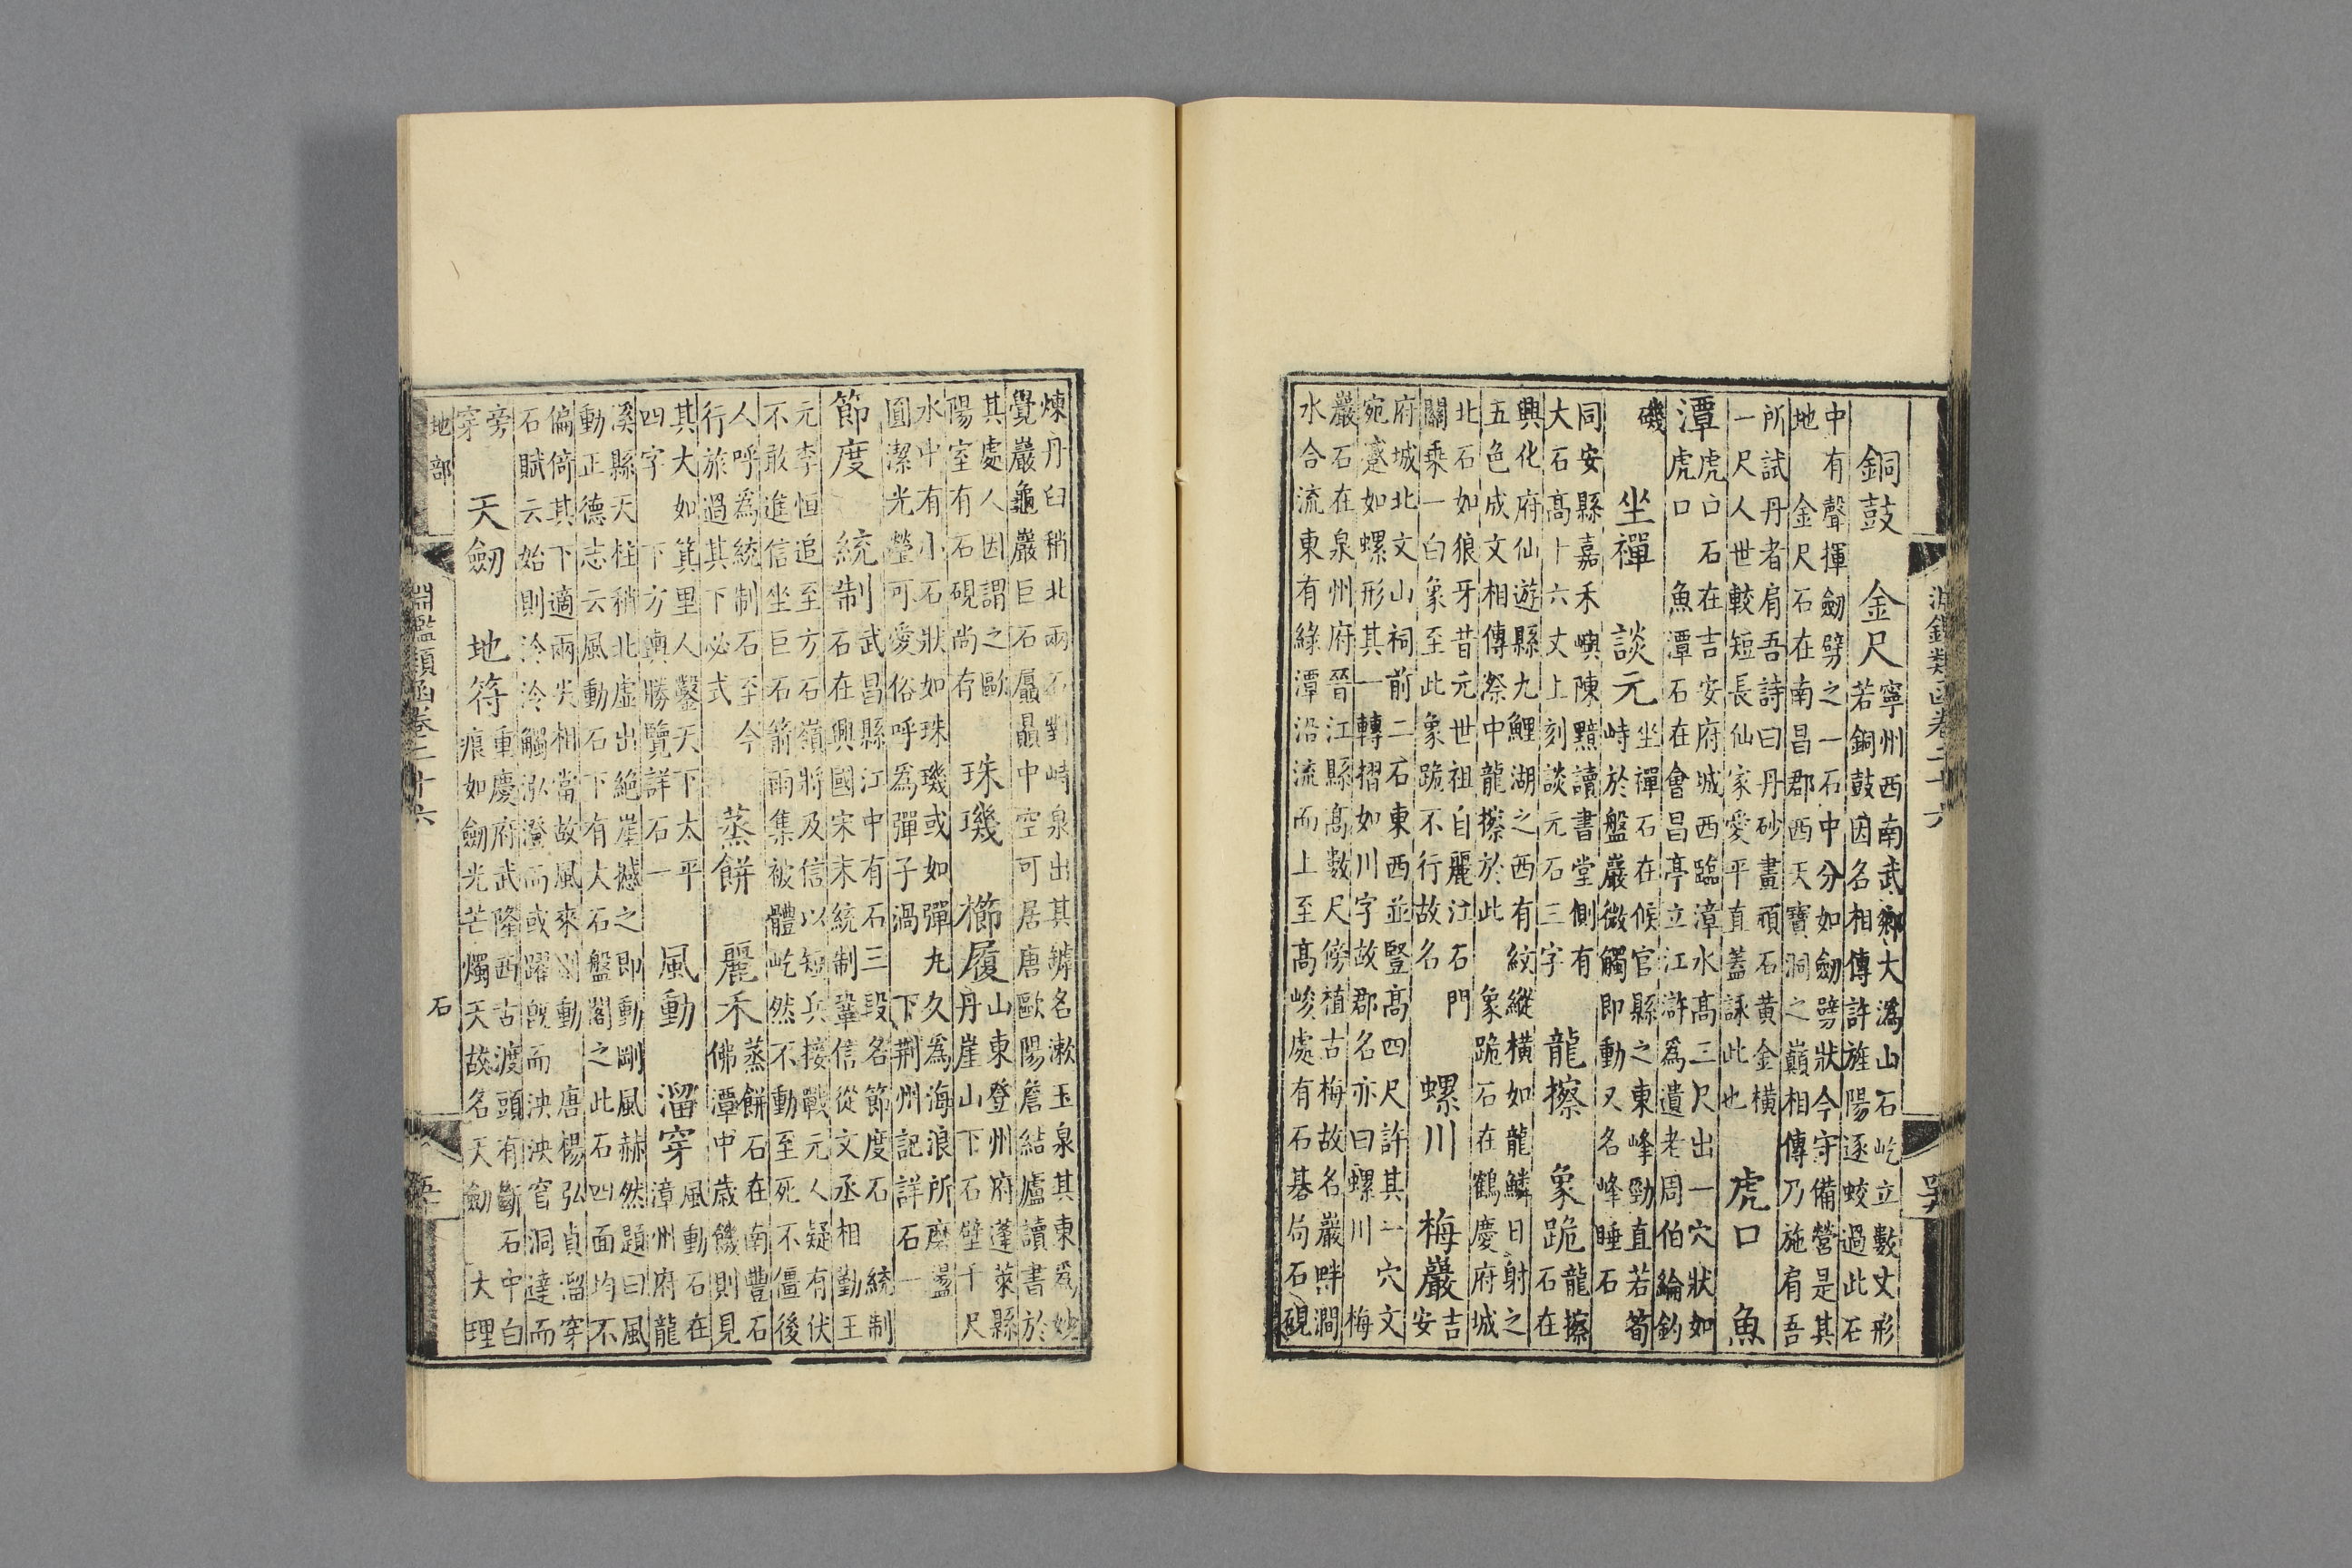 淵鑑類函卷二十六
銅鼓　金尺
寧州西南武鄉大溈山石屹立數丈形
若銅鼓因名相傳許旌陽逐蛟過此石
中有聲揮劒劈之一石中分如劒劈狀今守備營是其
地　金尺石在南昌郡西天寶洞之巔相傳乃施肩吾
所試丹者肩吾詩曰丹砂畫頑石黃金橫
一尺人世較短長仙家愛平直蓋詠此也
虎口　魚
潭
虎口石在吉安府城西臨漳水高三尺出一穴狀如
虎口　魚潭石在會昌亭立江滸爲遺老周伯綸釣
磯
坐禪　談元
坐禪石在候官縣之東峰勁直若筍
峙於盤巖微觸即動又名峰睡石
同安縣嘉禾嶼陳黯讀書堂側有
大石高十六丈上刻談元石三字
龍擦　象跪
龍擦
石在
興化府仙遊縣九鯉湖之西有紋縱橫如龍鱗日射之
五色成文相傳漈中龍擦於此　象跪石在鶴慶府城
北石如狼牙昔元世祖自麗江石門
關乘一白象至此象跪不行故名
螺川　梅巖
吉
安
府城北文山祠前二石東西並豎高四尺許其一穴文
宛蹇如螺形其一轉摺如川字故郡名亦曰螺川　梅
巖石在泉州府晉江縣高數尺傍植古梅故名巖畔澗
水合流東有綠潭沿流而上至高峻處有石碁局石硯
煉丹臼稍北兩石對峙泉出其罅名漱玉泉其東爲妙
覺巖龜巖巨石贔屭中空可居唐歐陽詹結廬讀書於
其處人因謂之歐
陽室有石硯尚存
珠璣　櫛履
山東登州府蓬萊縣
丹崖山下石壁千尺
水中有小石狀如珠璣或如彈丸久爲海浪所磨盪
圓潔光瑩可愛俗呼爲彈子渦　下荆州記詳石一
節度　統制
武昌縣江中有石三段名節度石　統制
石在興國宋末統制鞏信從文丞相勤王
元李恒追至方石嶺將及信以短兵接戰元人疑有伏
不敢進信坐巨石箭雨集被體屹然不動至死不僵後
人呼爲統制石至今
行旅過其下必式
蒸餅　麗禾
蒸餅石在南豐石
佛潭中歲饑則見
其大如箕里人鑿天下太平
四字　下方輿勝覽詳石一
風動　溜穿
風動石在
漳州府龍
溪縣天柱稍北虛出絕崖撼之即動剛風赫然題曰風
動正德志云風動石下有大石盤閣之此石四面均不
偏倚其下適兩尖相當故風來則動　唐楊弘貞溜穿
石賦云始則泠泠觸泓澄而或躍旣而泱泱官洞達而
旁
穿
天劒　地符
重慶府武隆西古渡頭有斷石中白
痕如劒光芒燭天故名天劒　大理
地部　石
淵鑑類函卷二十六